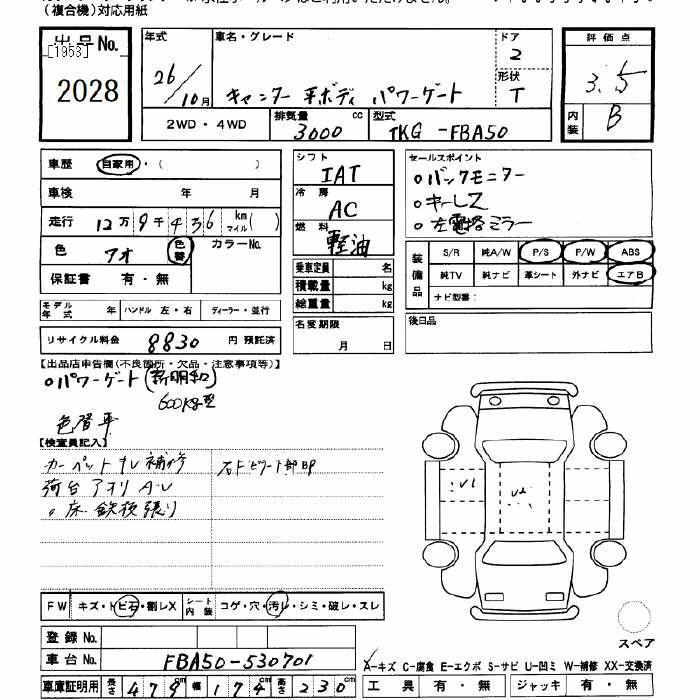 (複合機)対応用紙
出品No.
[1953]
2028
年式
26/10月
車名・グレード
キャンター 平ボディ パワーゲート
ドア
2
形状
T
評価点
3.5
内装
B
2WD・4WD
排気量
3000
cc
型式
TKG-FBA50
車歴 自家用・( )
車検 年 月
走行 12万9千436km マイル( )
色 アオ 色替 カラーNo.
保証書 有・無
モデル年式 年 ハンドル 左・右 ディーラー・並行
リサイクル料金 8830 円 預託済
シフト
IAT
冷房
AC
燃料
軽油
乗車定員 名
積載量 kg
総重量 kg
名変期限
月 日
セールスポイント
○バックモニター
○キーレス
○左電格ミラー
装備品
S/R 純A/W P/S P/W ABS
純TV 純ナビ 革シート 外ナビ エアB
ナビ型番:
後日品
【出品店申告欄(不良箇所・欠品・注意事項等)】
○パワーゲート(新明和)
600kg型
色替車
【検査員記入】
カーペットキレ補修
荷台アオリA・U
〃床鉄板張り
FW キズ・トビ石・割レX シート内装 コゲ・穴・汚レ・シミ・破レ・スレ
U1
U2
スペア
登録No.
車台No. FBA50-530701
車庫証明用 長さ 479cm 幅 174cm 高さ 230cm
A-キズ C-腐食 E-エクボ S-サビ U-凹ミ W-補修 XX-交換済
工具 有・無 ジャッキ 有・無